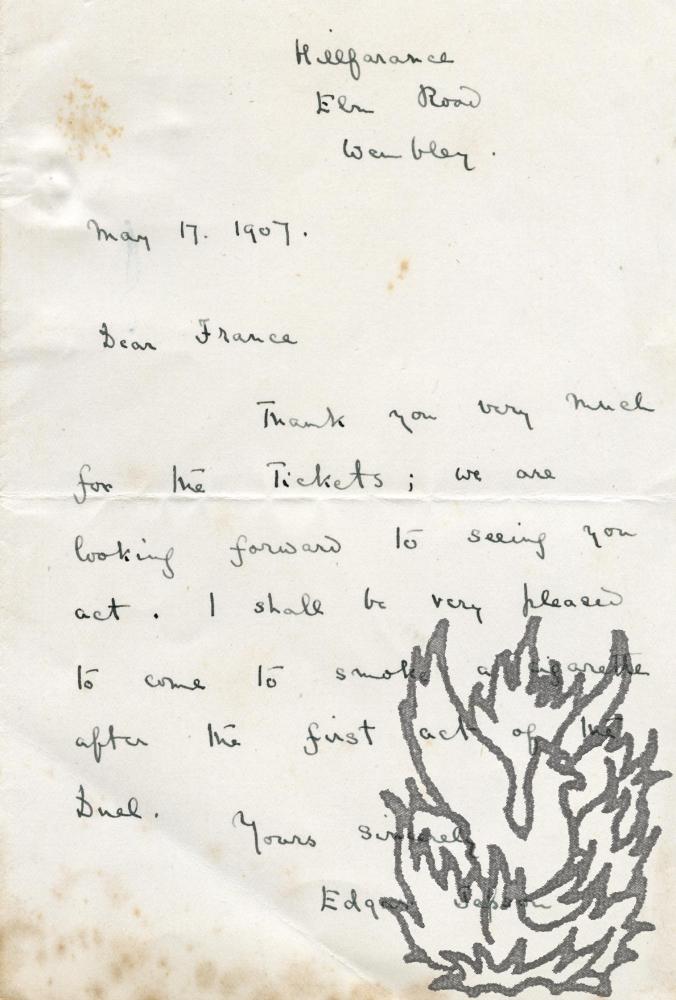 Hillfarance
Elm Road
Wembley.
May 17. 1907.
Dear France
Thank you very much
for the Tickets; we are
looking forward to seeing you
act. I shall be very pleased
to come to smoke a cigarette
after the first act of the
Duel.
Yours sincerely
Edgar